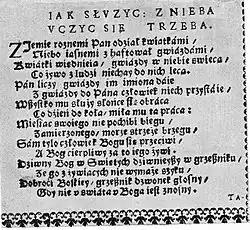 IAK SŁVZYC: Z NIEBA
VCZYC SIĘ TRZEBA.
Ziemię roznemi Pan odział kwiátkámi,
Niebo iásnemi z háftował gwiazdámi,
Kwiátki więdnieią, gwiazdy w niebie świecą,
Co żywo z ludzi niechay do nich lecą.
Pan liczy gwiazdy im imiona dáie
Z gwiazdy do Páná człowiek niech przystáie
Wszytko mu służy słońce się obráca
Co dzień do koła, miła mu tá praca:
Miesiąc swoiego nie pochibi biegu,
Zámierzonego, morze strzeże brzegu,
Sam tylo człowiek Bogu się przeciwi,
A Bog cierpliwy zá to iego żywi.
Dziwny Bog w Swiętych dziwnieyszy w grzeszniku,
Ze go z żywiących nie wymaże szyku,
Dobroći Boskiey, grzesznik dzwonek głosny,
Gdy nie v świátá v Bogá iest znośny.
TA